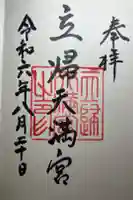 奉拝
立帰天満宮
令和六年八月二十日